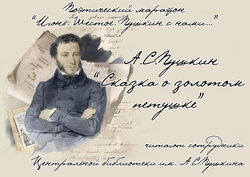 Поэтический марафон
"Июнь. Шестое. Пушкин с нами..."
А.С.Пушкин
"Сказка о золотом
петушке"
читают сотрудники
Центральной библиотеки им. А.С.Пушкина